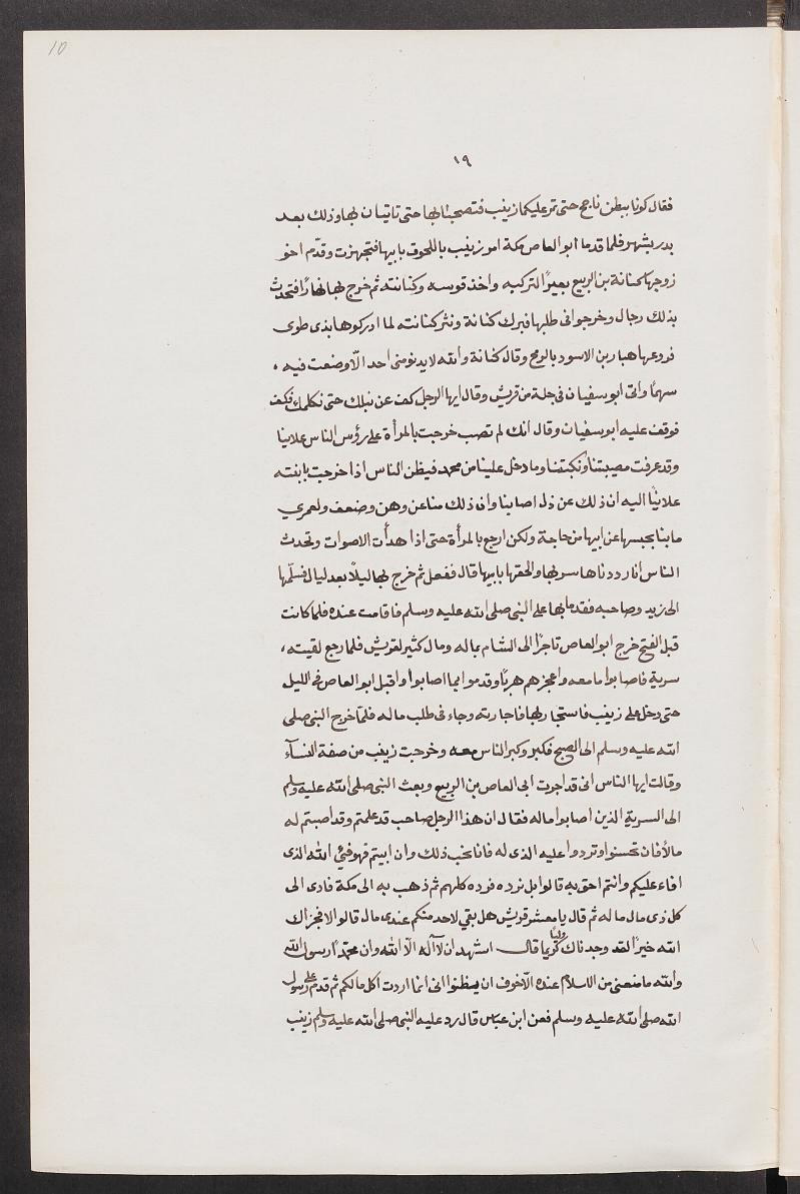 10
١٩
فقال كونا ببطن ناجح حتى تمر عليكما زينب فتصحبانها حتى تاتيان بها وذلك بعد
بدر بشهر فلما قدم ابو العاص مكة امر زينب باللحوق بابيها فتجهزت وقدّم اخو
زوجها كنانة بن الربيع بعيرًا لتركبه واخذ قوسه وكنانته ثم خرج بها نهارًا فتحدث
بذلك رجال وخرجوا فى طلبها فبرك كنانة ونثر كنانته لما ادركوها بذى طوى
فروعها هبار بن الاسود بالرمح وقال كنانة والله لا يدنو منى احد الّا وضعت فيه
سهمًا واتى ابو سفيان فى جلة من قريش وقال ايها الرجل كف عن نبلك حتى نكلمك فكف
فوقف عليه ابو سفيان وقال انك لم تصب خرجت بالمرأة على رؤس الناس علانيا
وقد عرفت مصيبتنا ونكبتنا وما دخل علينا من محمد فيظن الناس اذا خرجت بابنته
علانيًا اليه ان ذلك عن ذل اصابنا وان ذلك منا عن وهن وضعف ولعمري
ما بنا بحبسها عن ابيها من حاجة ولكن ارجع بالمرأة حتى اذا هدأت الاصوات وتحدث
الناس انا رددناها سر بها والحقها بابيها قال ففعل ثم خرج بها ليلًا بعد ليال فسلّمها
الى زيد وصاحبه فقدما بها على النبى صلى الله عليه وسلم فاقامت عنده فلما كانت
قبل الفتح خرج ابو العاص تاجرًا الى الشام بماله ومال كثير لقريش فلما رجع لقيته
سرية فاصابوا ما معه واعجزهم هربًا وقدموا بما اصابوا واقبل ابو العاص فى الليل
حتى دخل على زينب فاستجار بها فاجارته وجاء فى طلب ماله فلمّا خرج النبى صلى
الله عليه وسلم الى الصبح فكبر وكبر الناس معه وخرجت زينب من صفة النسآء
وقالت ايها الناس انى قد اجرت ابى العاص بن الربيع وبعث النبى صلى الله عليه وسلم
الى السرية الذين اصابوا ماله فقال ان هذا الرجل صاحب قد علمتم وقد اصبتم له
مالًا فان تحسنوا وتردوا عليه الذى له فانا نحب ذلك وان ابيتم فهو فئ الله الذى
افاء عليكم وانتم احق به قالوا بل نرده فرده كلهم ثم ذهب به الى مكة فادى الى
كل ذى مال ماله ثم قال يا معشر قريش هل بقي لاحد منكم عندى مال قالوا لا فجزاك
الله خيرًا لقد وجدناك وفيًا كريما قال اشهد ان لآ آله الّا الله وان محمّدًا رسول الله
والله ما منعنى من الاسلام عنده الّا خوف ان يظنوا انى انما اردت اكل مالكم ثم قدم على رسول
الله صلى الله عليه وسلم فعن ابن عباس قال رد عليه النبى صلى الله عليه وسلم زينب